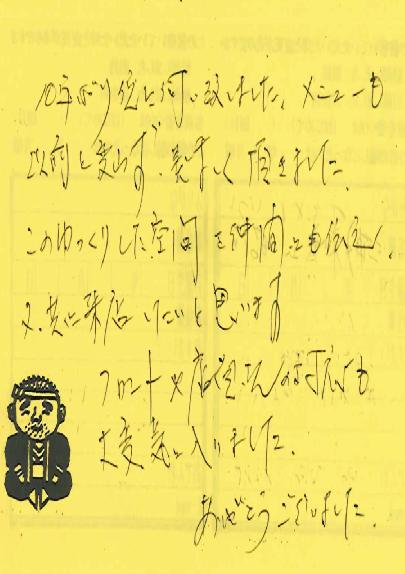 10年ぶり位に伺い致しました。メニューも
以前と変らず、美味しく頂きました。
このゆっくりした空間を仲間にも伝え、
又、共に来店したいと思います
フロントや店員さんの対応も
大変気に入りました。
ありがとうございました。